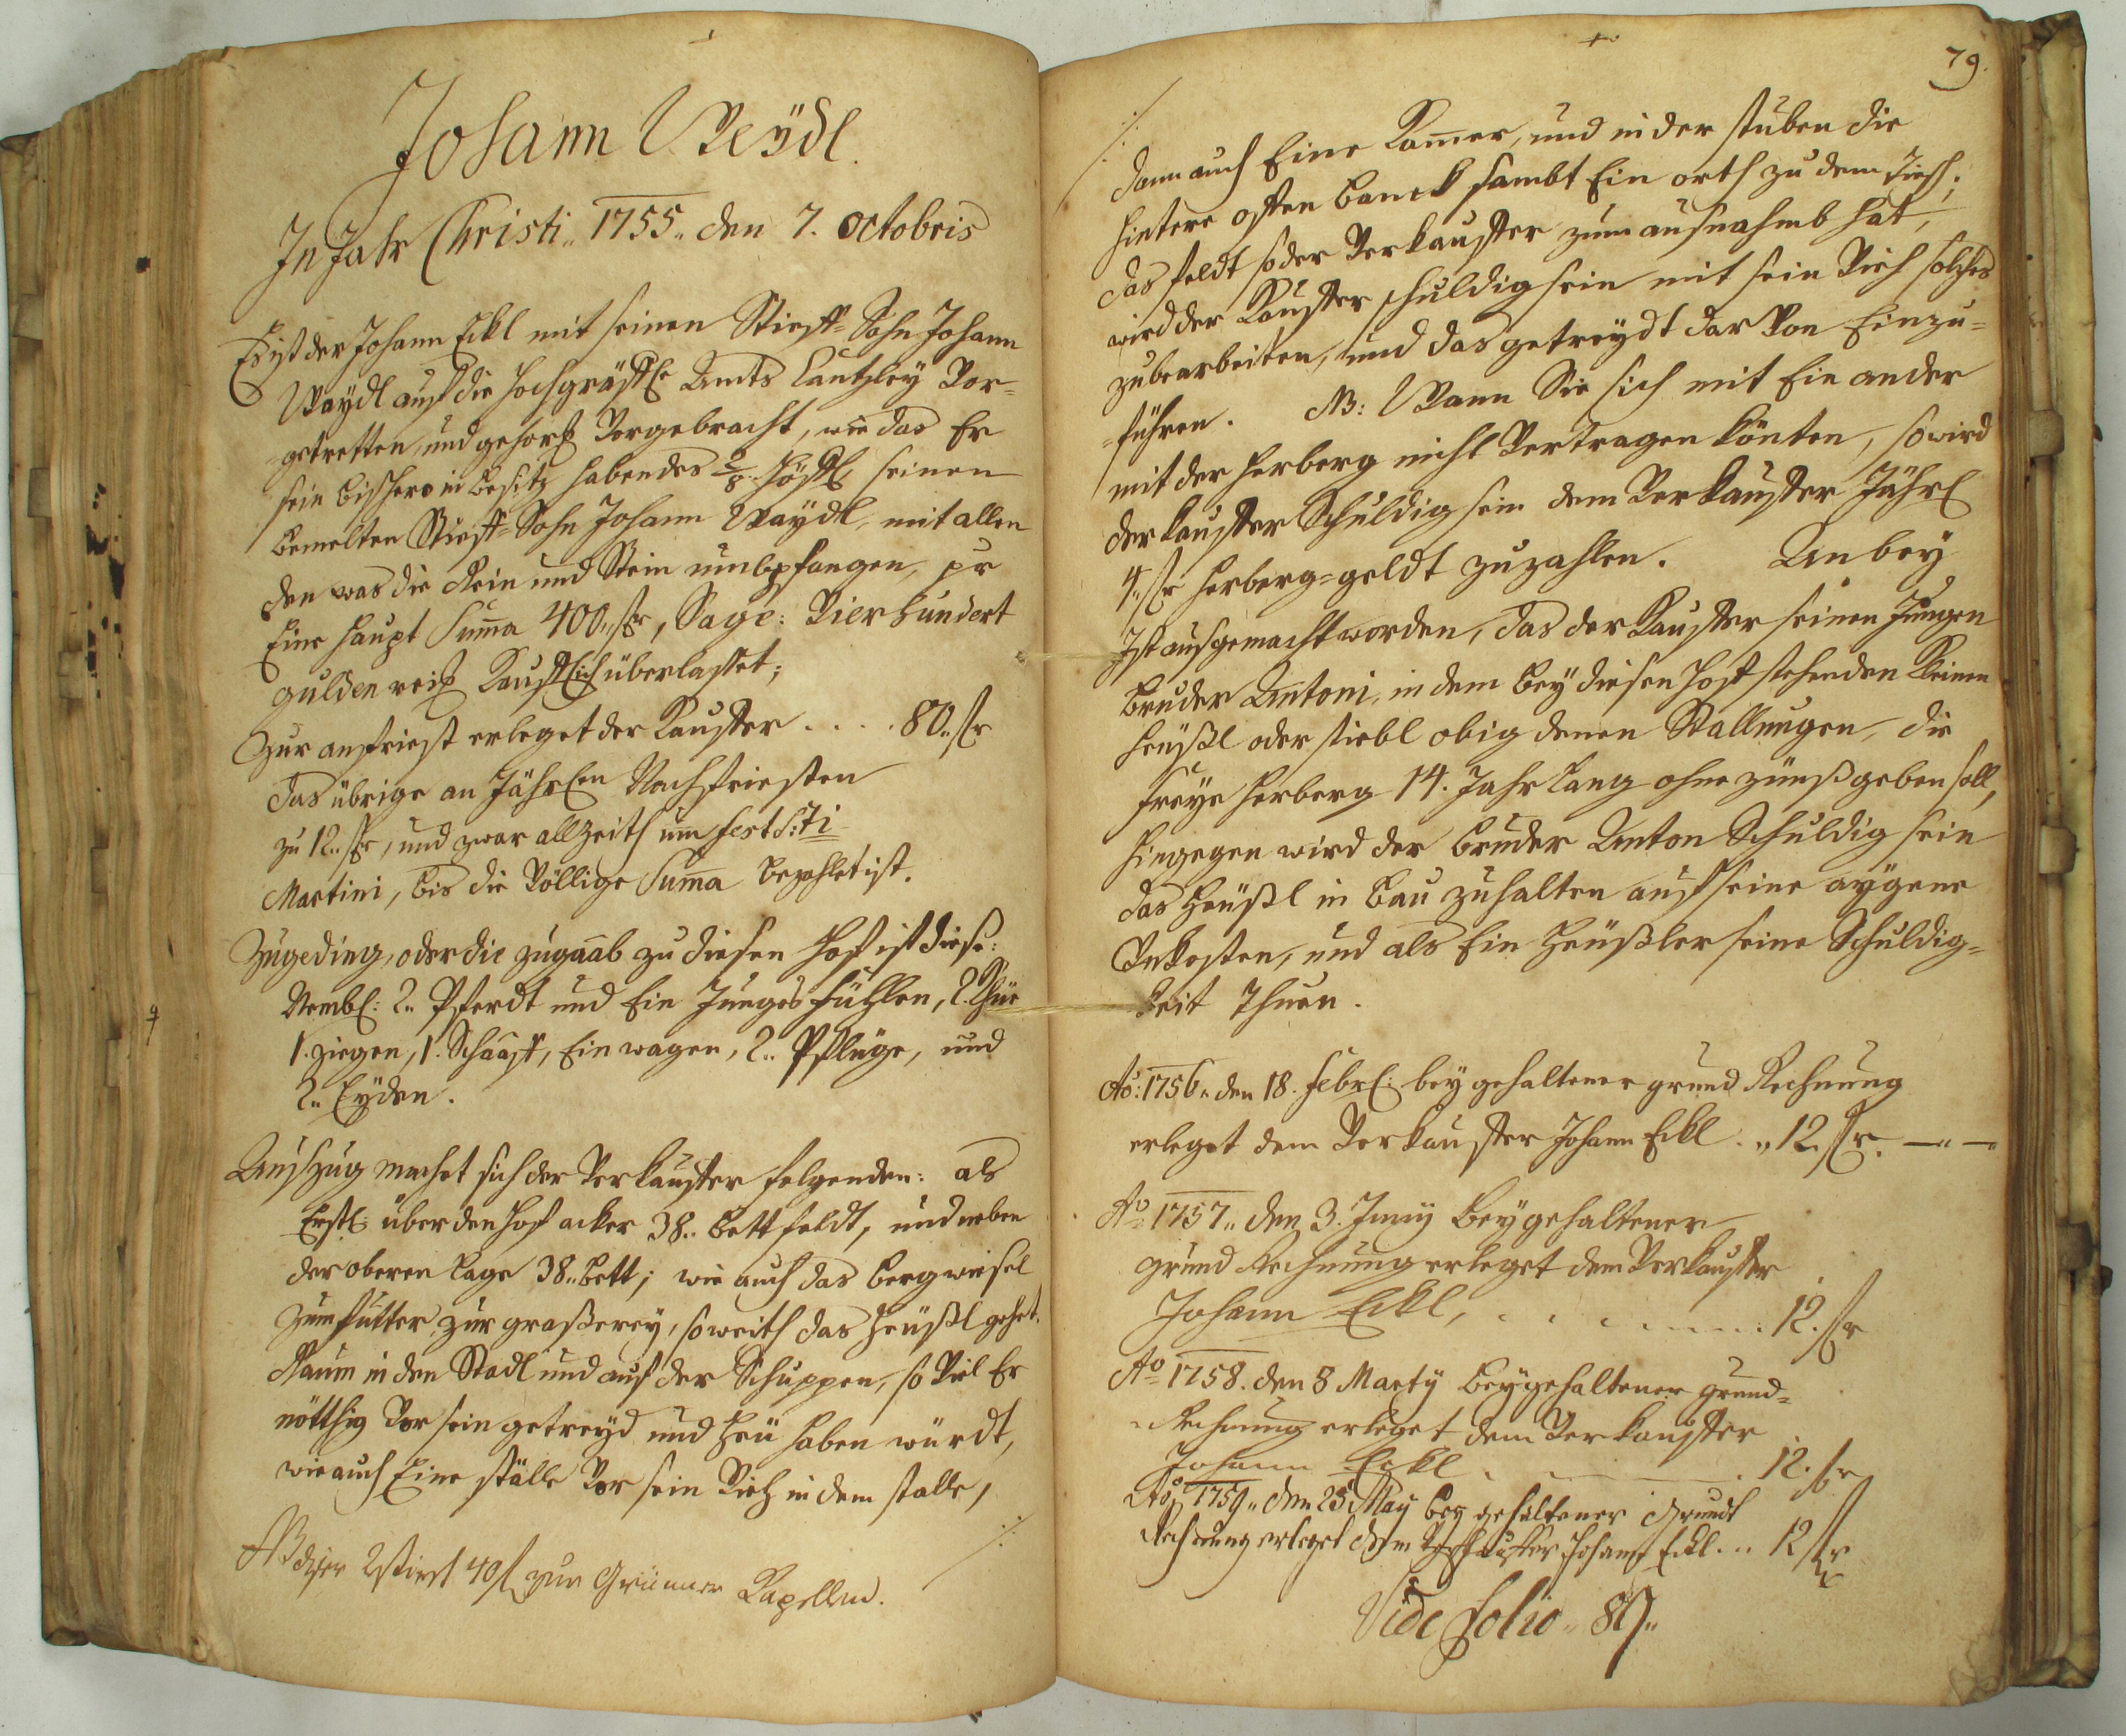 Johann Weÿdl.
In Jahr Christi 1755 den 7. Octobris
Es ist der Johann Eckl mit seinen Stieff-Sohn Johann
Waÿdl auf die Hochgräffl. Ambts Cantzleÿ Vor-
getretten, und gehors. Vorgebracht, wie das Er
sein bishero in Besitz habendes 2/8 Höffl seinen
bemelten Stieff-Sohn Johann Waÿdl, mit allen
den was die Rein und Stein umbgefangen, pr
Eine Haupt Suma 400 fr, Sage: Vierhundert
gulden reis Kaufflich überlasset;
Zur anfriest erleget der Kauffer . . . . 80 fr
das übrige an Jährlen Nachfriesten
zu 12 fr, und zwar allzeith um Fest S:ti
Martini, bis die Völlige Suma bezahlet ist.
Zugeding, oder die zugaab zu diesen Hof ist diese:
Nembl: 2 Pferdt und Ein Junges Füchlen, 2. Küe
1. ziegen, 1. Schaaff, Ein wagen, 2 Pflüge, und
2 Eÿden.
Auszug machet sich der Verkauffer folgenden: als
Erstl: über den Hof acker 38 bett feldt, und neben
der oberen Lage 38 bett; wie auch das bergwiesel
zum Futter zur graßereÿ, so weith das Heüßl gehet.
Raum in den Stadl und auf der Schuppen, so Viel Er
nötthig Vor sein getreÿd und Heü haben würdt,
wie auch Eine ställe Vor sein Vieh in dem stalle,
NB 40 f zur Grünner Kapellen.
79.
dann auch Eine Kamer, und in der stuben die
hintere offen banck sambt Ein orth zu dem Tisch;
das feldt so der Verkauffer zum ausnahmb hat,
wird der Kauffer schuldig sein mit sein Vieh solches
zubearbeiten, und das getreÿdt darvon Einzu-
führen. NB: Wann Sie sich mit Ein ander
mit der Herberg nicht Vertragen könten, so wird
der Kauffer Schuldig sein dem Verkauffer Jährl
4 fr Herberg-geldt zuzahlen. Anbeÿ
Ist ausgemacht worden, das der Kauffer seinen Jungen
Bruder Antoni, in dem beÿ diesen Hof stehenden Kleinen
Heüßl oder stiebl obig denen Stallungen, die
freÿe Herberg 14. Jahr lang ohne zünß geben soll,
hingegen wird der Bruder Anton Schuldig sein
das Heüßl in bau zuhalten auf seine aÿgene
Unkosten, und als Ein Heüßler seine Schuldig-
keit Thuen.
Ao: 1756 den 18. Febrl: beÿ gehaltener grund Rechnung
erleget dem Verkauffer Johann Eckl . 12. fr. — —
Ao 1757 den 3. Junÿ beÿgehaltener
grund Rechnung erleget dem Verkauffer
Johann Eckl, . . . . . . . 12. fr
Ao 1758. den 8 Martÿ beÿgehaltener grund-
Rechnung erleget dem Verkauffer
Johann Eckl . . 12. fr
Ao 1759 den 25 Maÿ beÿ gehaltener Grundt
Rechnung erleget dem Verkauffer Johann Eckl . . . 12 fr
Vide folio 89